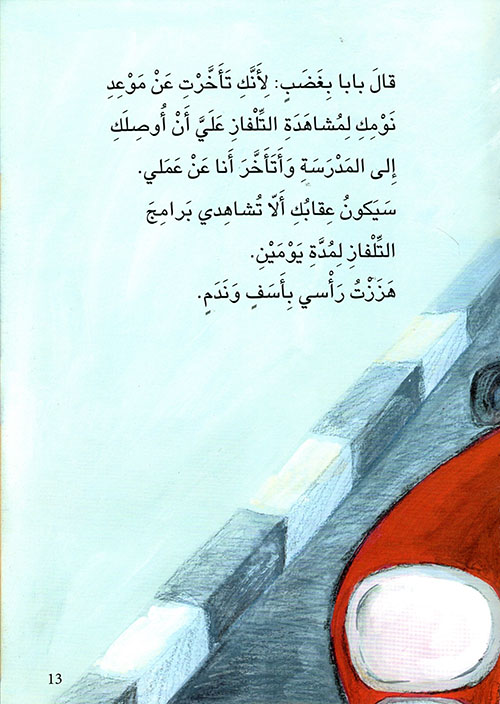 قالَ بابا بِغَضَبٍ: لِأَنَّكِ تَأَخَّرْتِ عَنْ مَوْعِدِ
نَوْمِكِ لِمُشاهَدَةِ التِّلْفازِ عَلَيَّ أَنْ أُوصِلَكِ
إِلى المَدْرَسَةِ وَأَتَأَخَّرَ أَنا عَنْ عَمَلي.
سَيَكونُ عِقابُكِ أَلّا تُشاهِدي بَرامِجَ
التِّلْفازِ لِمُدَّةِ يَوْمَيْنِ.
هَزَزْتُ رَأْسي بِأَسَفٍ وَنَدَمٍ.
13